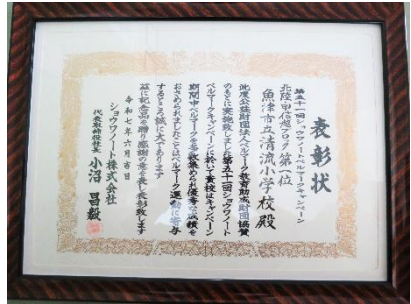 表彰状
第五十一回ショウワノートベルマークキャンペーン
北陸甲信越ブロック 第一位
魚津市立清流小学校殿
此度公益財団法人ベルマーク教育助成財団協賛
のもとに実施致しました第五十一回ショウワノート
ベルマークキャンペーンに於いて貴校はキャンペーン
期間中ベルマークを多数集められ優秀な成績を
おさめられましたことはベルマーク運動に寄与
するところ誠に大であります
茲に記念品を贈り感謝の意を表し表彰致します
令和七年六月吉日
ショウワノート株式会社
代表取締役社長 小沼昌毅